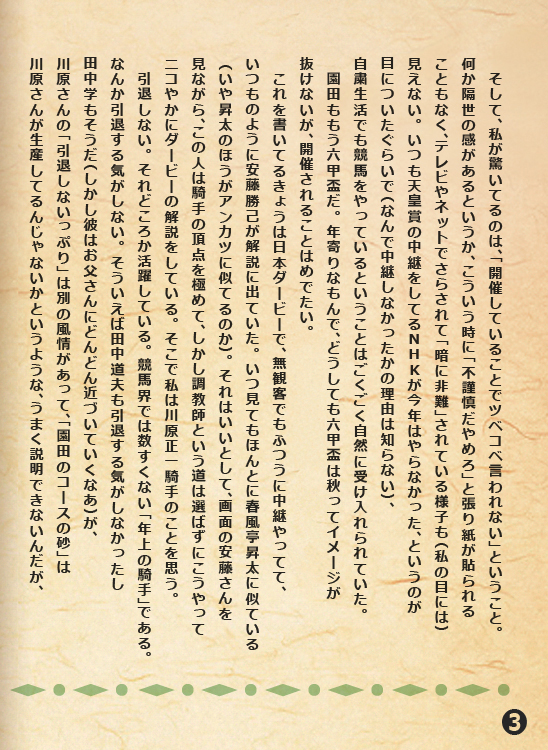 そして、私が驚いてるのは、「開催していることでツベコベ言われない」ということ。
何か隔世の感があるというか、こういう時に「不謹慎だやめろ」と張り紙が貼られる
こともなく、テレビやネットでさらされて「暗に非難」されている様子も(私の目には)
見えない。いつも天皇賞の中継をしてるNHKが今年はやらなかった、というのが
目についたぐらいで(なんで中継しなかったかの理由は知らない)、
自粛生活でも競馬をやっているということはごくごく自然に受け入れられていた。
園田ももう六甲盃だ。年寄りなもんで、どうしても六甲盃は秋ってイメージが
抜けないが、開催されることはめでたい。
これを書いてるきょうは日本ダービーで、無観客でもふつうに中継やってて、
いつものように安藤勝己が解説に出ていた。いつ見てもほんとに春風亭昇太に似ている
(いや昇太のほうがアンカツに似てるのか)。それはいいとして、画面の安藤さんを
見ながら、この人は騎手の頂点を極めて、しかし調教師という道は選ばずにこうやって
ニコやかにダービーの解説をしている。そこで私は川原正一騎手のことを思う。
引退しない。それどころか活躍している。競馬界では数すくない「年上の騎手」である。
なんか引退する気がしない。そういえば田中道夫も引退する気がしなかったし
田中学もそうだ(しかし彼はお父さんにどんどん近づいていくなあ)が、
川原さんの「引退しないっぷり」は別の風情があって、「園田のコースの砂」は
川原さんが生産してるんじゃないかというような、うまく説明できないんだが、
3